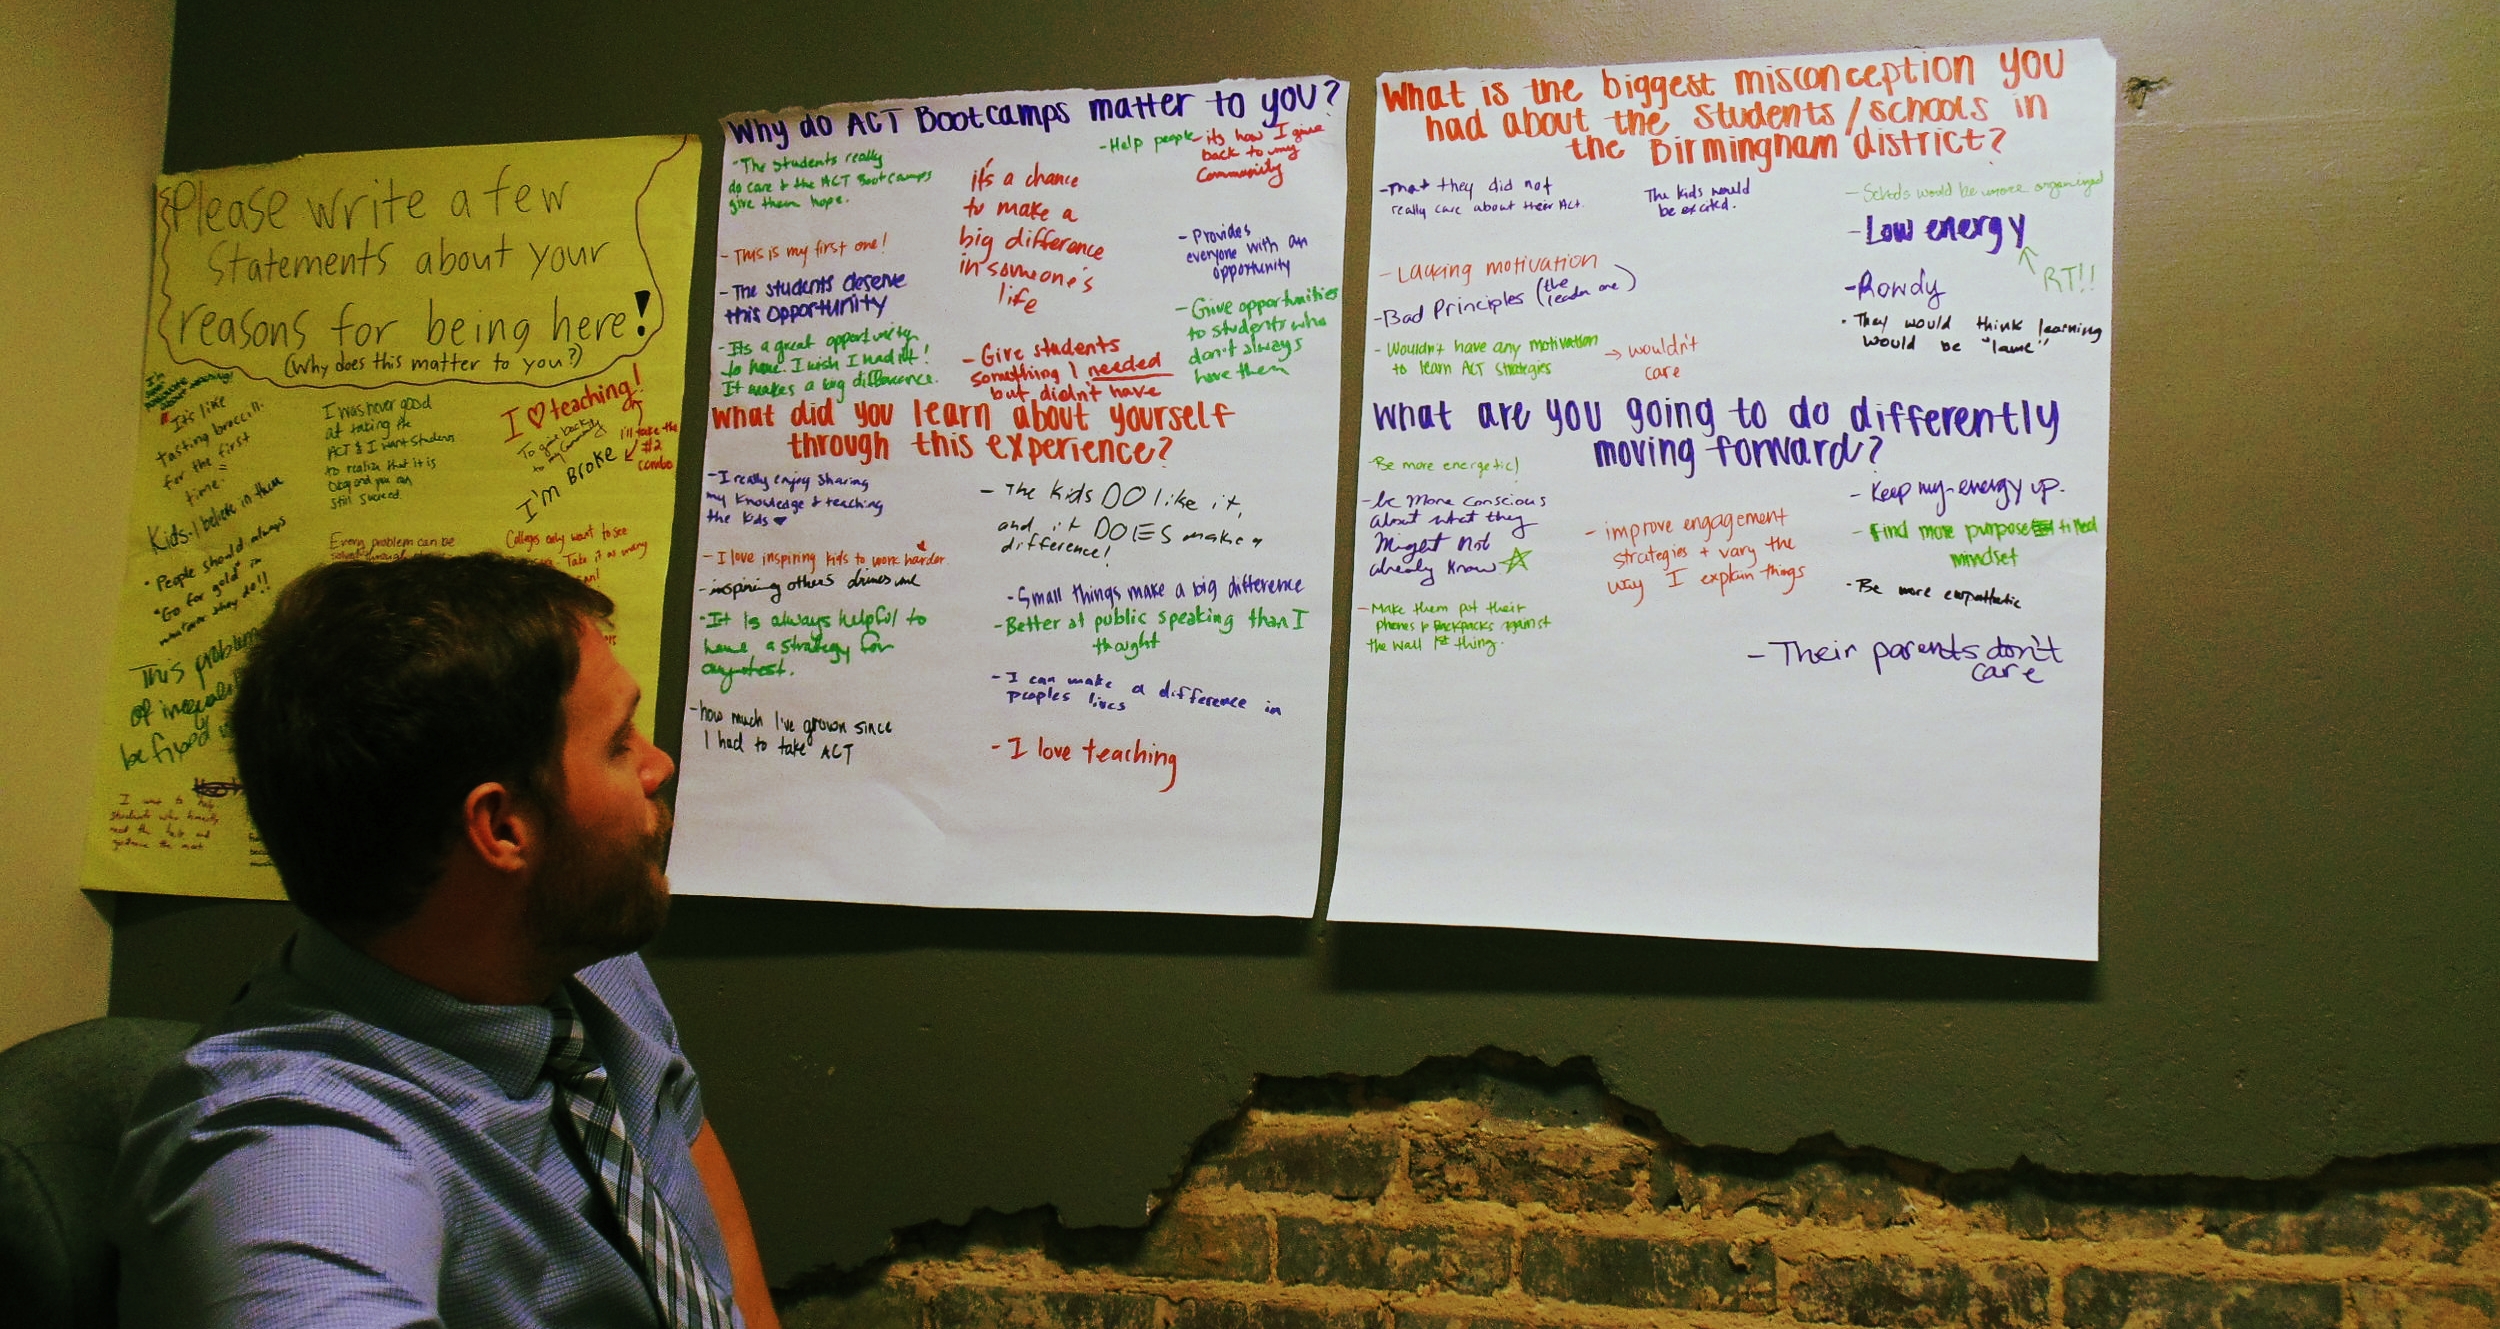 Please write a few
Statements about your
reasons for being here!
(Why does this matter to you?)
"It's like
tasting broccili
for the first
time."
Kids-I believe in them
• People should always
"Go for gold" in
whatever they do!!
This problem
of
be fixed
I want to help
students who
need the help and
guidance the most
I was never good
at taking the
ACT & I want students
to realize that it is
Okay and you can
still succeed.
Every problem can be
I ♡ teaching!
To give back
to my community
I'll take the
#2
combo
I'm Broke
Colleges only want to see
Take it as many
Why do ACT Bootcamps matter to you?
- The students really
do care & the ACT Boot Camps
give them hope.
- This is my first one!
- The students deserve
this opportunity
- Its a great opportunity
to have. I wish I had it!
It makes a big difference.
it's a chance
to make a
big difference
in someone's
life
- Give students
something I needed
but didn't have
- Help people
- its how I give
back to my
Community
- Provides
everyone with an
opportunity
- Give opportunities
to students who
don't always
have them
What did you learn about yourself
through this experience?
- I really enjoy sharing
my knowledge & teaching
the kids ♥
- I love inspiring kids to work harder
- inspiring others drives me
- It is always helpful to
have a strategy for
any test.
- how much I've grown since
I had to take ACT
- The kids DO like it,
and it DOES make a
difference!
- Small things make a big difference
- Better at public speaking than I
thought
- I can make a difference in
peoples lives
- I love teaching
What is the biggest misconception you
had about the students/schools in
the Birmingham district?
- That they did not
really care about their ACT.
- Lacking motivation
- Bad Principles (the
leader one)
- Wouldn't have any motivation
to learn ACT strategies
→ wouldn't
care
The kids would
be excited.
- Schools would be more organized
- Low energy
RT!!
- Rowdy
• They would think learning
would be "lame"
What are you going to do differently
moving forward?
- Be more energetic!
- be more conscious
about what they
Might Not
already know ☆
- Make them put their
phones & backpacks against
the wall 1st thing.
- improve engagement
strategies + vary the
way I explain things
- Keep my energy up.
- Find more purpose filled
mindset
- Be more empathetic
- Their parents don't
care